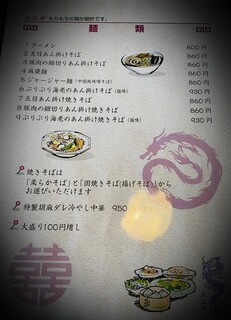 もちもちの麺が絶妙です。
麺 類
1 ラーメン 600円
2 五目あん掛けそば 860円
3 豚肉の細切りあん掛けそば 860円
4 麻婆麺 860円
5 ジャージャー麺 860円
6 ぷりぷり海老のあん掛けそば (塩味) 930円
7 五目あん掛け焼きそば 860円
8 豚肉の細切りあん掛け焼きそば 860円
9 ぷりぷり海老のあん掛け焼きそば (塩味) 930円
焼きそばは
「柔らかそば」と『固焼きそば(揚げそば)』から
お選びいただけます
特製胡麻ダレ冷やし中華 950
大盛り100円増し
囍